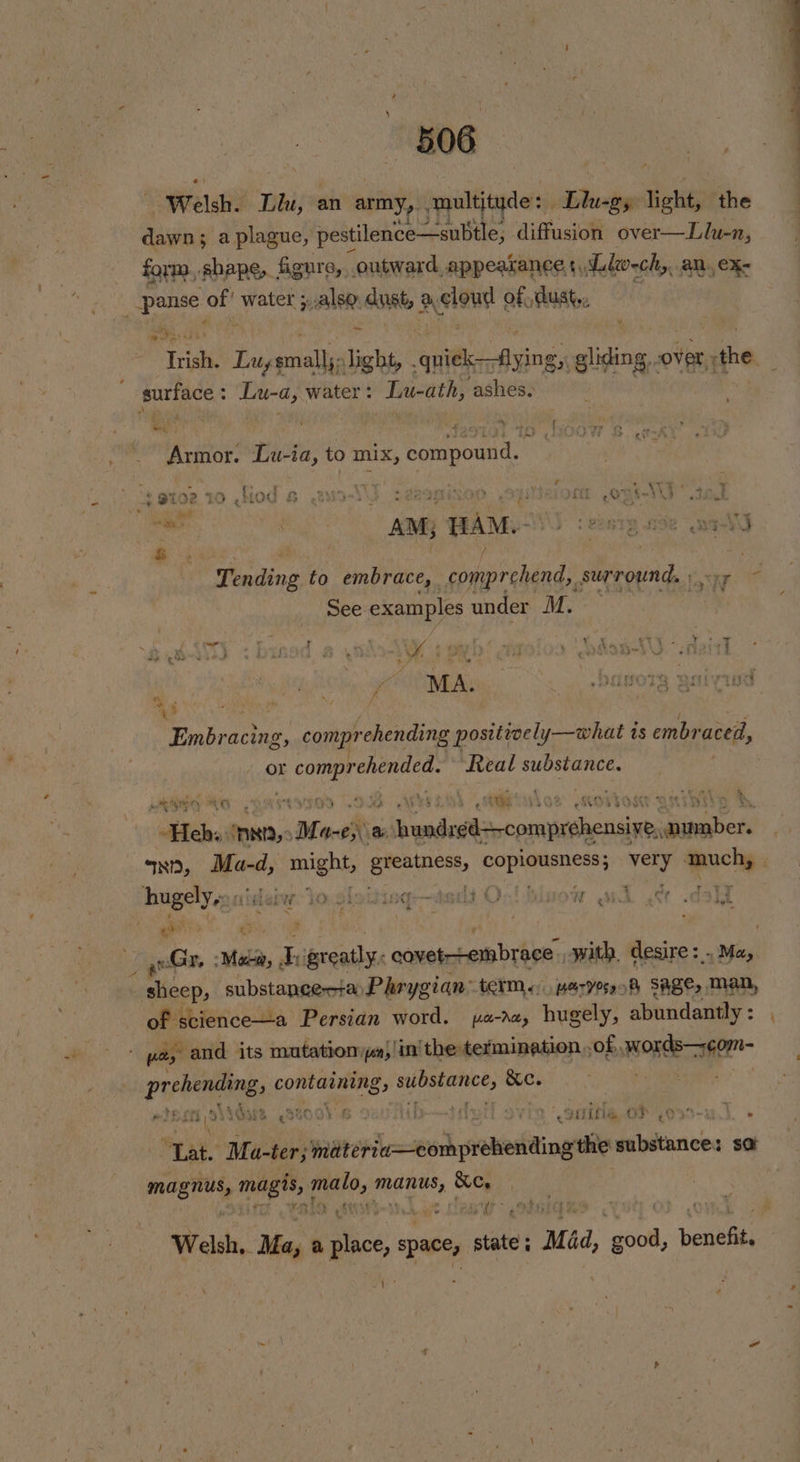 506
Welsh. Llu, an army, multitude: Llu-g, light, the
dawn; a plague, pestilence—subtle, diffusion over—Llu-n,
form, shape, figure, outward appearance; Llw-ch, an ex-
panse of water; also dust, a cloud of dust.
Irish. Lu, small; light, quick—flying, gliding over the
surface: Lu-a, water: Lu-ath, ashes.
Armor. Lu-ia, to mix, compound.
AM, HAM.
Tending to embrace, comprehend, surround.
See examples under M.
MA.
Embracing, comprehending positively—what is embraced,
or comprehended. Real substance.
Heb. מאה, Ma-e, a hundred—comprehensive number.
מאד, Ma-d, might, greatness, copiousness; very much,
hugely.
Gr. Μαω, I greatly covet—embrace with desire: Μα,
sheep, substance—a Phrygian term. μα-γος, a sage, man,
of science—a Persian word. μα-λα, hugely, abundantly:
μα, and its mutation μη, in the termination of words—com-
prehending, containing, substance, &c.
Lat. Ma-ter, materia—comprehending the substance: so
magnus, magis, malo, manus, &c.
Welsh. Ma, a place, space, state; Mád, good, benefit.